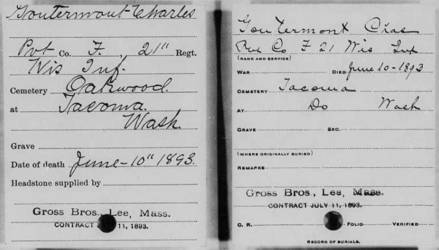 Gontermont Charles
Pvt Co. F. 21" Regt.
Wis Inf.
Cemetery Oakwood
at Tacoma.
Wash
Grave
Date of death June-10" 1893.
Headstone supplied by
Gross Bros., Lee, Mass.
CONTRACT 11, 1893.
Gontermont Chas
Co F 21 Wis Inf
(RANK AND SERVICE)
WAR DIED June 10-1893
CEMETERY Tacoma
AT Do Wash
GRAVE SEC.
(WHERE ORIGINALLY BURIED)
REMARKS
Gross Bros., Lee, Mass.
CONTRACT JULY 11, 1893.
FOLIO VERIFIED
RECORD OF BURIALS.